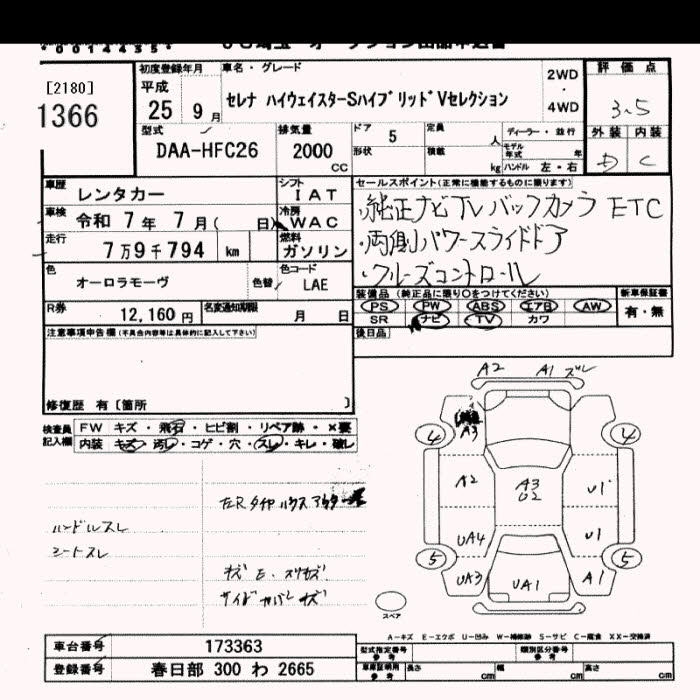 *0014435*
[2180]
1366
初度登録年月
平成
25 9 月
車名・グレード
セレナ ハイウェイスターSハイブリッドVセレクション
2WD
・
4WD
評価点
3.5
外装 内装
D C
型式
DAA-HFC26
排気量
2000
CC
ドア 5
定員
人
形状
積載
kg
ディーラー・並行
モデル年式 年
ハンドル 左・右
車歴
レンタカー
シフト
IAT
車検
令和 7 年 7 月( 日)
冷房
WAC
走行
7万9千794 km
燃料
ガソリン
色
オーロラモーヴ
色替
色コード
LAE
R券
12,160 円
名変通知期限
月 日
セールスポイント(正常に機能するものに限ります)
・純正ナビTVバックカメラ ETC
・両側パワースライドドア
・クルーズコントロール
装備品 (純正品に限り○をつけてください)
新車保証書
有・無
PS PW ABS エアB AW
SR ナビ TV カワ
後日品
注意事項申告欄(不具合内容等は具体的に記入して下さい)
修復歴 有〔箇所 〕
検査員記入欄
FW キズ・飛石・ヒビ割・リペア跡・×要
内装 キズ・汚れ・コゲ・穴・スレ・キレ・破レ
ハンドルスレ
シートスレ
左Rタイヤハウスアウター
キズ E、スリキズ
サイドカバーキズ
A2 A1 スレ
A3
4 4
A2
A3
U2
U1
UA4
U1
5 5
UA3
UA1
A1
スペア
A-キズ E-エクボ U-凹み W-補修跡 S-サビ C-腐食 XX-交換済
車台番号 173363
登録番号 春日部 300 わ 2665
型式指定番号
参考
類別区分番号
参考
車庫証明用
参考
長さ cm
幅 cm
高さ cm